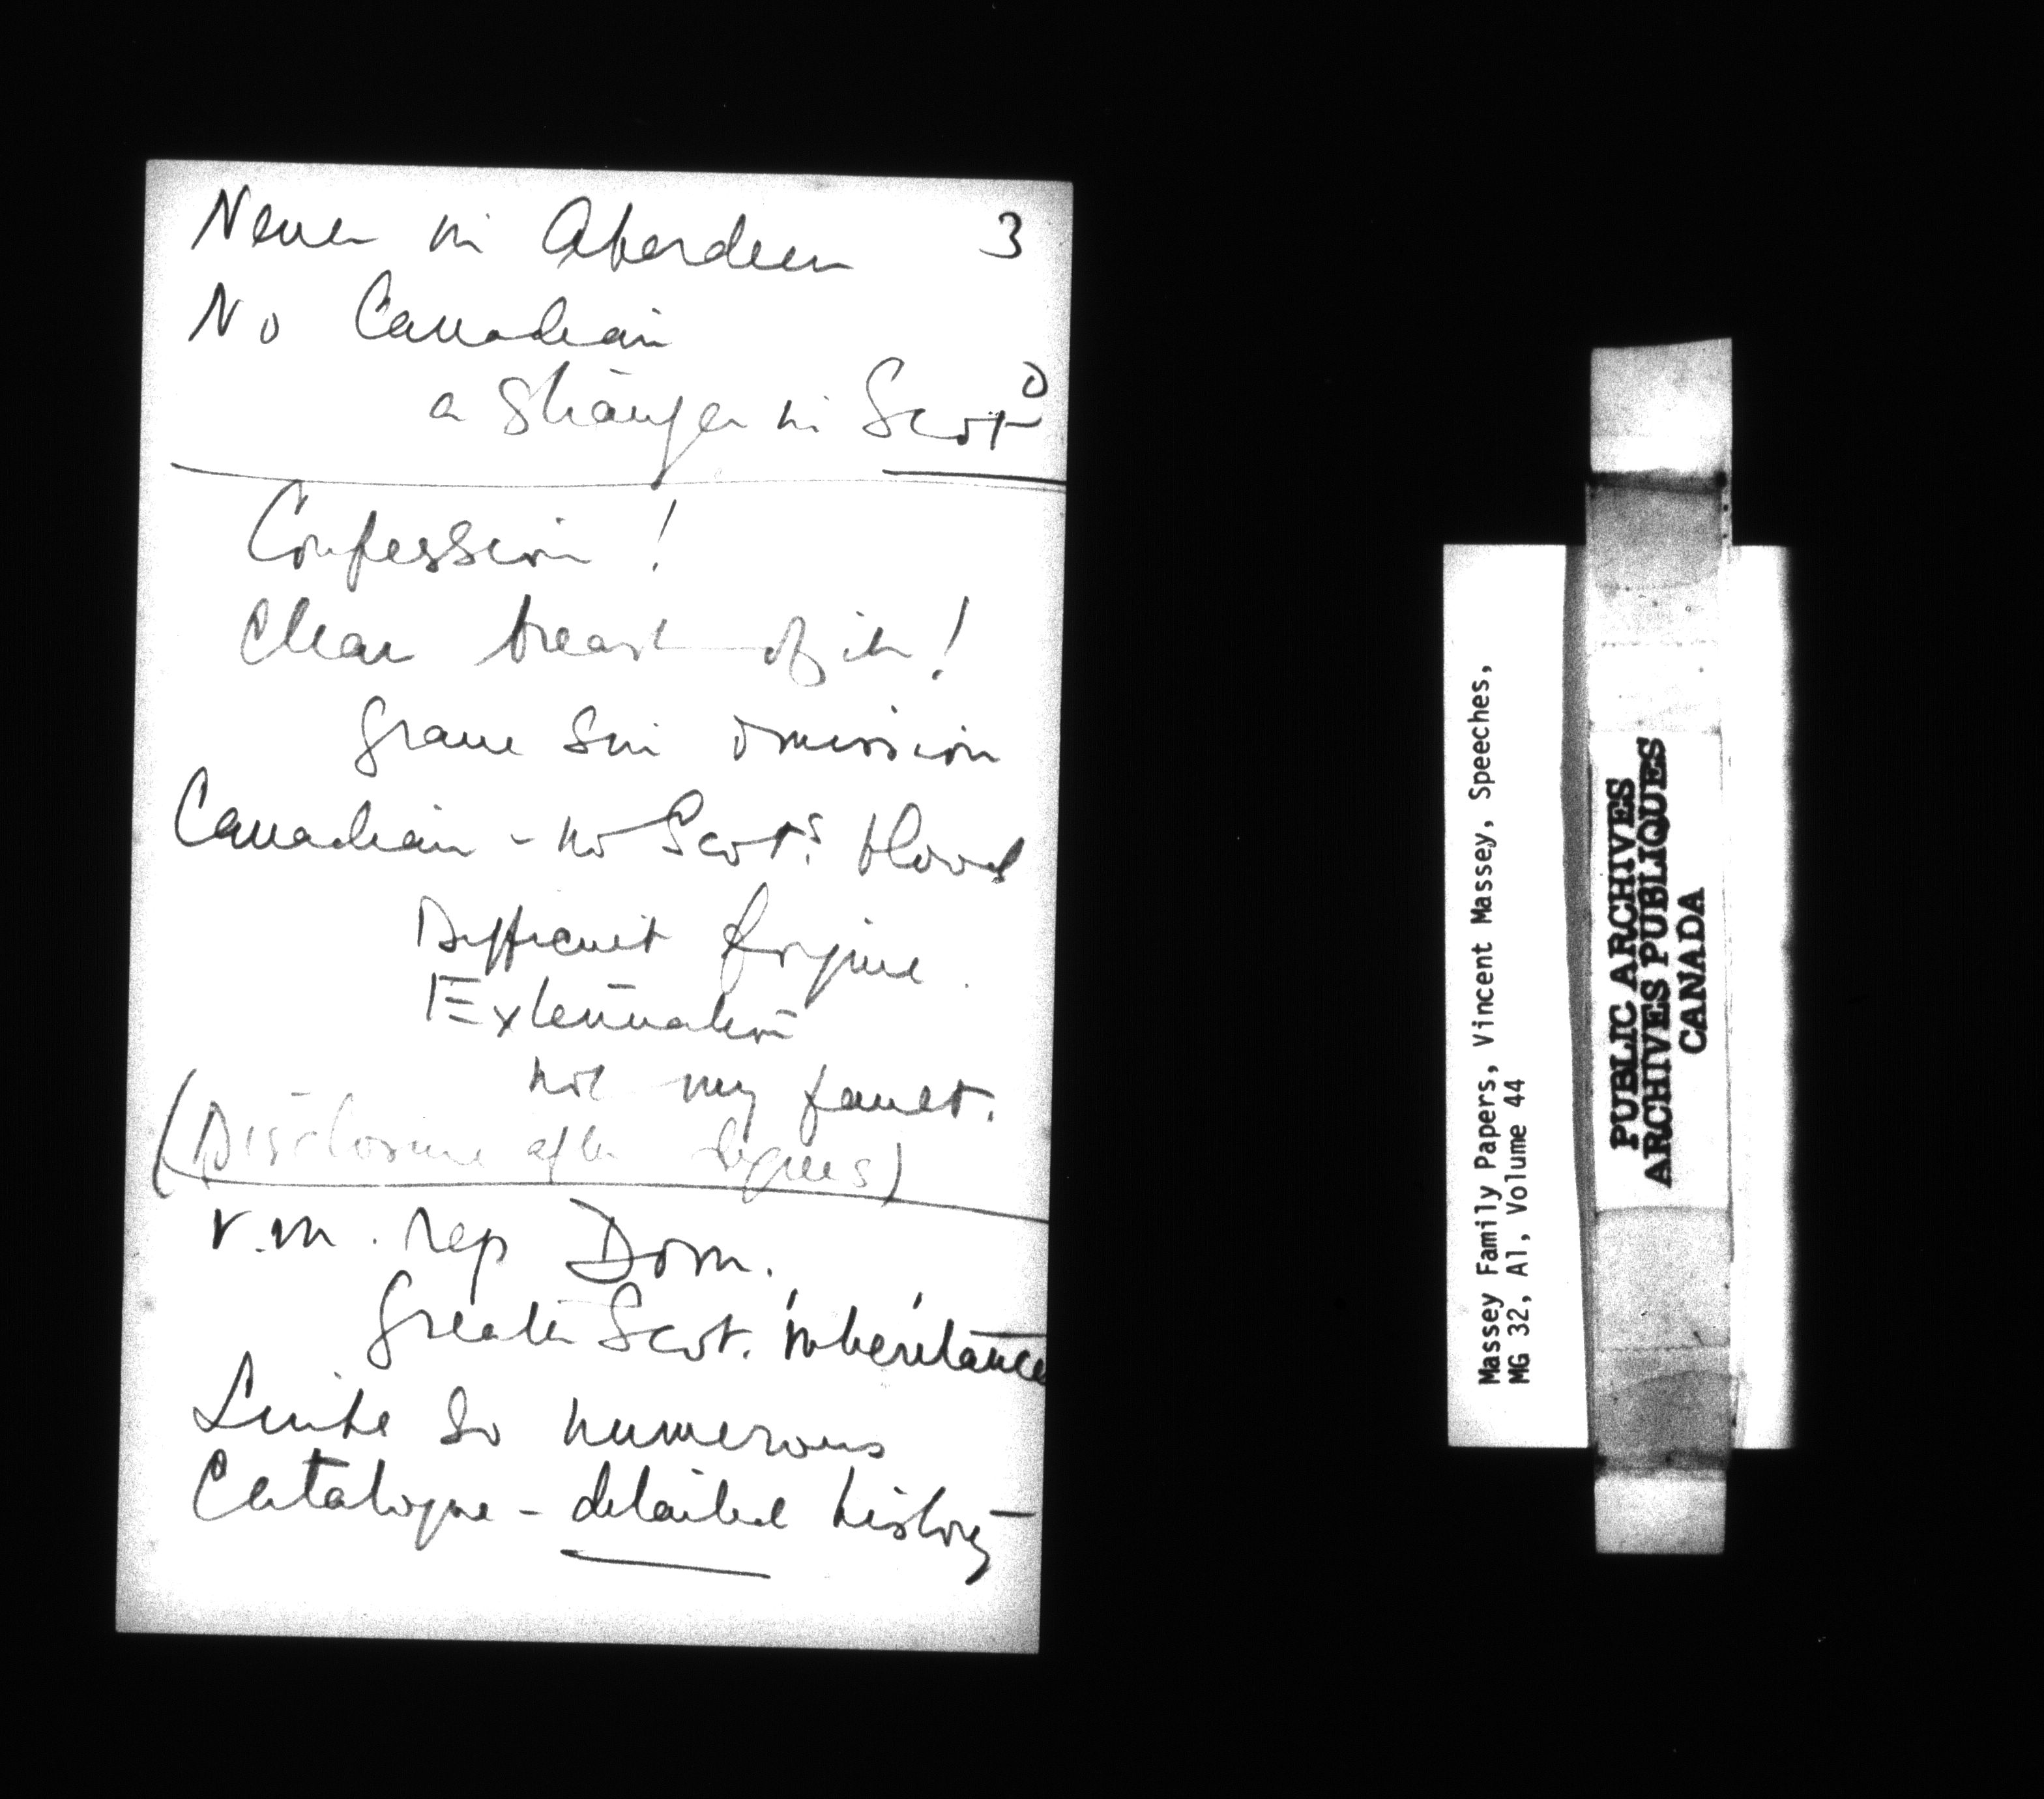 Never in Aberdeen 3
No Canadian
a stranger in Scotᴰ
Confession!
Clean breast of it!
grave sin omission
Canadian - no Scots blood
Difficult forgive.
Extenuation
not my fault.
(Disclosure after degrees)
V.M. rep Dom.
Greater Scot. inheritance
Links so numerous
Catalogue - detailed history
Massey Family Papers, Vincent Massey, Speeches,
MG 32, A1, Volume 44
PUBLIC ARCHIVES
ARCHIVES PUBLIQUES
CANADA